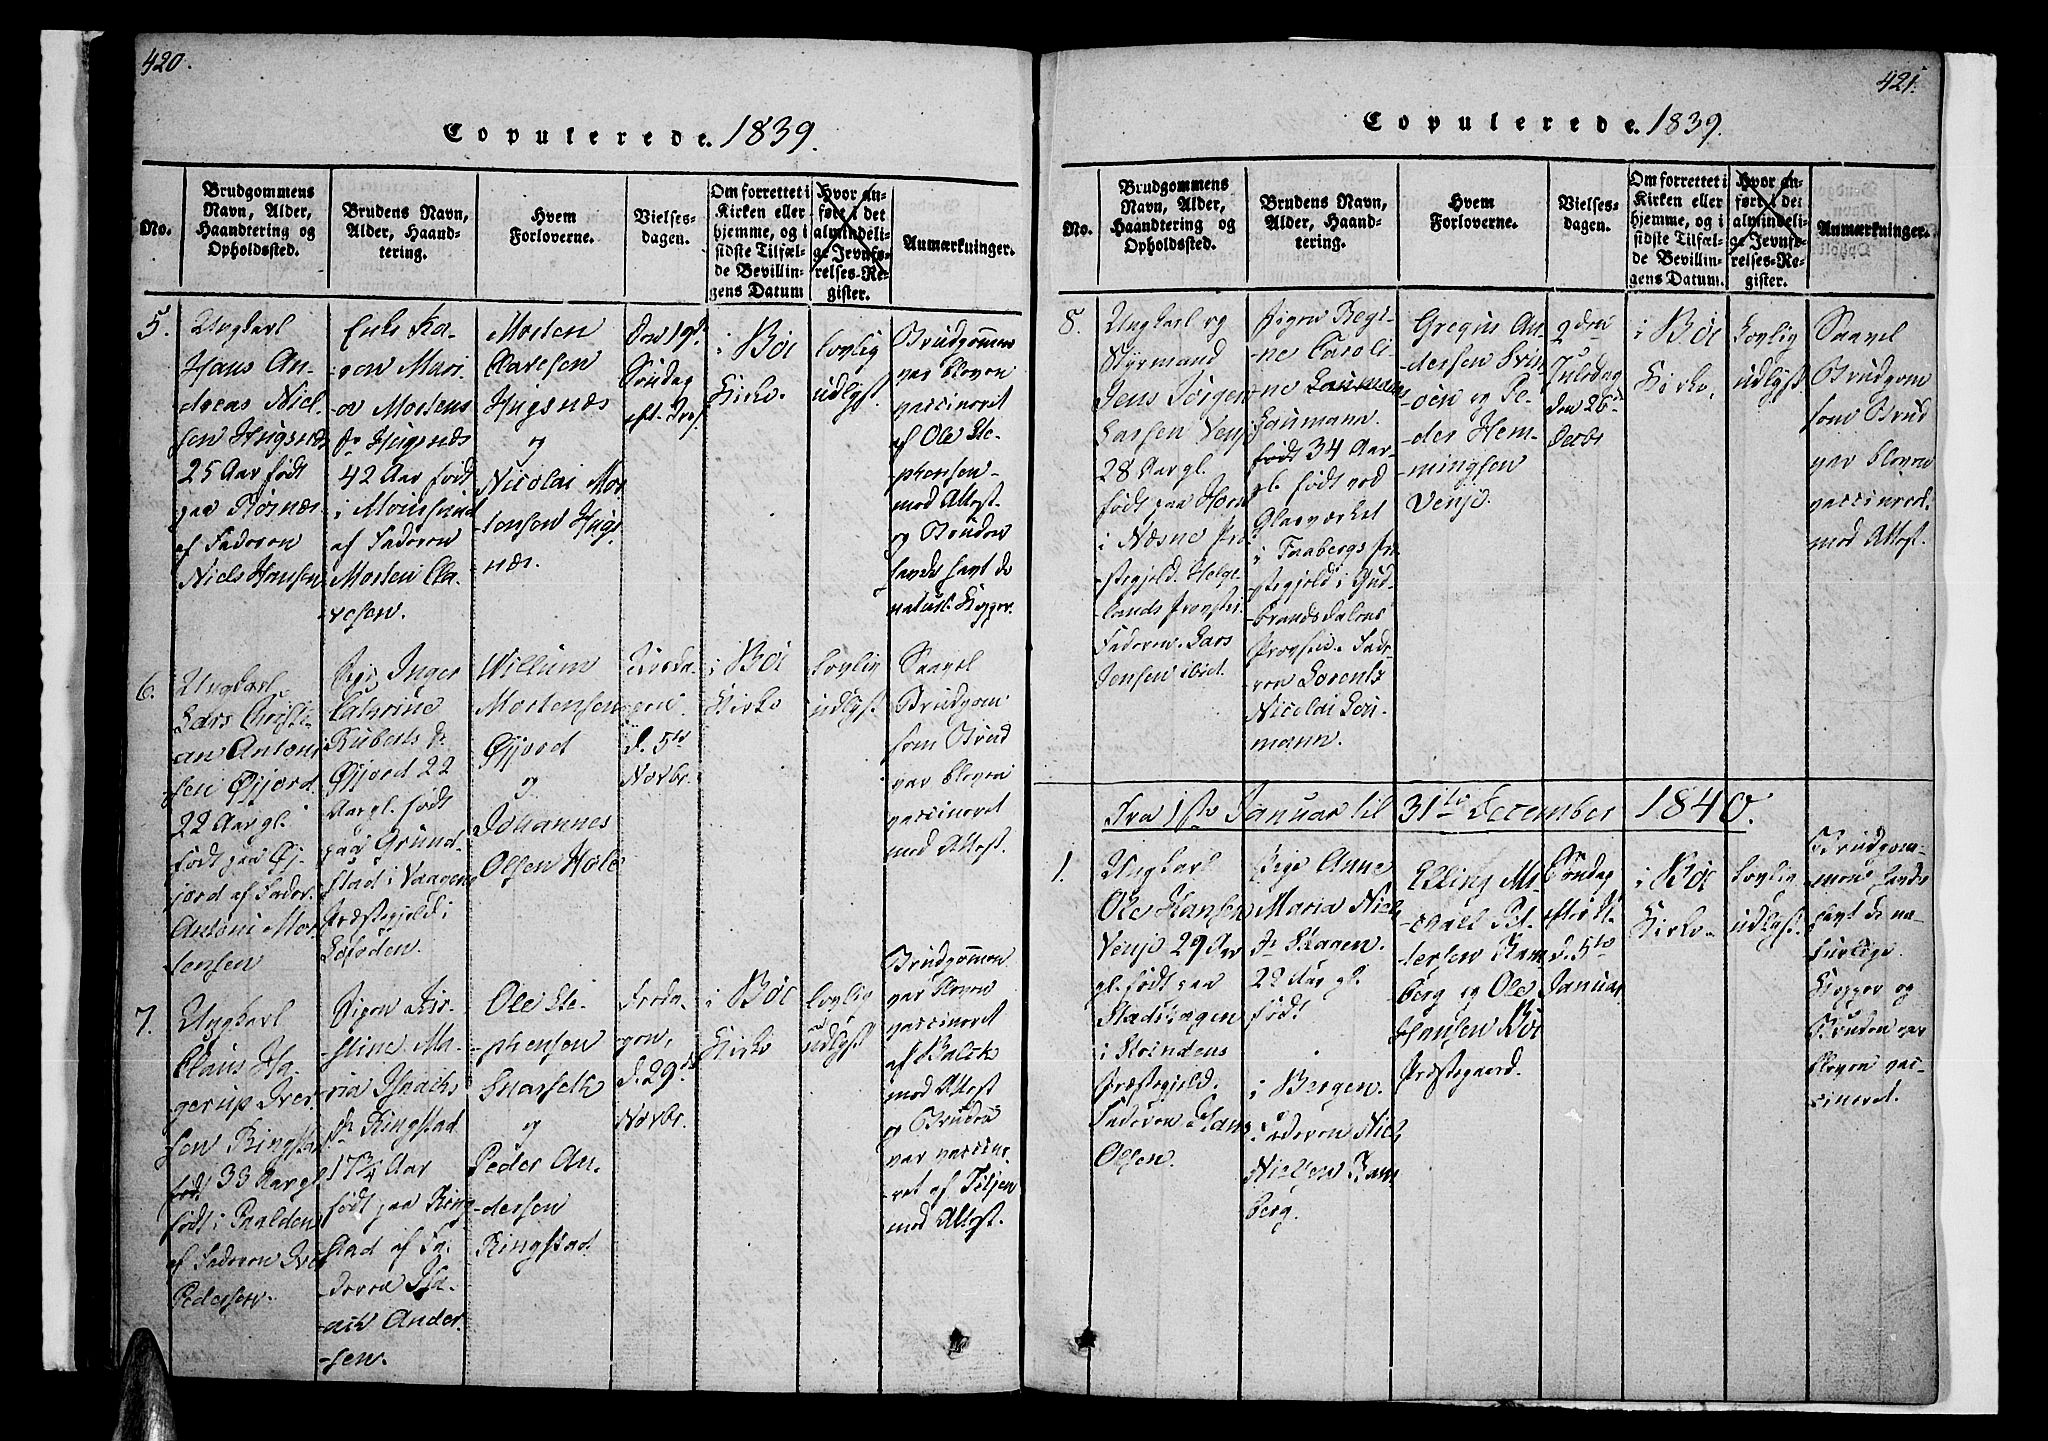 420.
Copulerede. 1839.
No.
Brudgommens
Navn, Alder,
Haandtering og
Opholdssted.
Brudens Navn,
Alder, Haand-
tering.
Hvem
Forloverne.
Vielses-
dagen.
Om forrettet i
Kirken eller
hjemme, og i
sidste Tilfæl-
de Bevillin-
gens Datum
Hvor an-
ført i det
almindeli-
ge Jevnfø-
relses-Re-
gister.
Anmærkninger.
5.
Ungkarl
Hans An-
dreas Niel-
sen Hugsnæs
25 Aar født
paa
af Faderen
Niels Hansen
Enke Ka-
ren Mari-
a Mortens
dr Hugsnæs
42 Aar født
i
af Faderen
Morten Cla-
vesen.
Morten
Clavesen
Hugsnæs
og
Nicolai Mor
tensen Hugs
næs.
den 19de
Søndag
eft. Tref.
i Böe
Kirke.
lovlig
udlyst
Brudgommen
var bleven
vaccineret
af Ole Ste-
phensen
med Attest
og Bruden
havde havt de
naturl. Kopper.
6.
Ungkarl
Lars Christi-
an Antoni
sen Øijord
22 Aar gl.
født paa Øj-
jord af Fader.
Antoni Mor-
tensen
Pige Inger
Catrine
Ruberts dr
Øijord 22
Aar gl. født
paa Grund-
stad i Vaagens
Præstegjeld i
Lofoden.
Willum
Mortensen
Øijord
og
Johannes
Olsen Hole
Tirsda-
gen
d. 5te
Novbr.
i Böe
Kirke
lovlig
udlyst
Saavel
Brudgom
som Brud
var bleven
vaccineret
med Attest.
7.
Ungkarl
Claus Ha-
gerup Iver-
sen Ringstad
født 33 Aar gl.
født i
af Faderen Iver
Pedersen.
Pigen Kir-
stine Ma-
ria Isaachs
dr Ringstad
17¾ Aar
født paa Ring
stad af Fa-
deren Isa-
ach Ander-
sen.
Ole Ste-
phensen
og
Peder An-
dersen
Ringstad
Freda-
gen,
d. 29de
Novbr.
i Böe
Kirke
lovlig
udlyst
Brudgommen
var bleven
vaccineret
af
med Attest
og Bruden
var vaccine-
ret af
med Attest.
421.
Copulerede. 1839.
No.
Brudgommens
Navn, Alder,
Haandtering og
Opholdssted.
Brudens Navn,
Alder, Haand-
tering.
Hvem
Forloverne.
Vielses-
dagen.
Om forrettet i
Kirken eller
hjemme, og i
sidste Tilfæl-
de Bevillin-
gens Datum.
Hvor an-
ført i det
almindeli-
ge Jevnfø-
relses-Re-
gister.
Anmærkninger.
8.
Ungkarl og
Styrmand
Jens Jørgen
Larsen Venje
28 Aar gl.
født paa
i Næsne Præ-
stegjeld. Helge-
lands Provstie.
Faderen Lars
Jensen ibid.
Pigen Regi-
ne Caroli-
ne
Laumann.
født 34 Aar
gl. født ved
Glasværket
i Faabergs Præ
stegjeld i Gud-
brandsdalens
Provstie. Fade-
ren Lorents
Nicolai Lau-
mann.
Gregus An-
dersen Svin-
øen og Pe-
der Hem-
mingsen
Venje.
2den
Juledag
den 26de
Decbr
i Böe
Kirke.
Lovlig
udlyst
Saavel
Brudgom
som Brud
var bleven
vaccinered
med Attest.
Fra 1ste Januar til 31te December 1840.
1.
Ungkarl
Ole Hansen
Venje 29 Aar
gl. født paa
i Steindens
Præstegjeld.
Faderen Hans
Olsen.
Pige Anne
Maria Niels
dr Skagen.
22 Aar gl.
født
i Bergen.
Faderen Niels
Nielsen Ram
berg.
Elling Mi-
chael Pet-
tersen Ram
berg og Ole
Hansen Böe
Præstegaard.
Söndag
efter N.
d. 5te
Januar
i Böe
Kirke.
Lovlig
udlyst.
Brudgom-
men havde
havt de na-
turlige
Kopper og
Bruden var
bleven vac-
cineret.